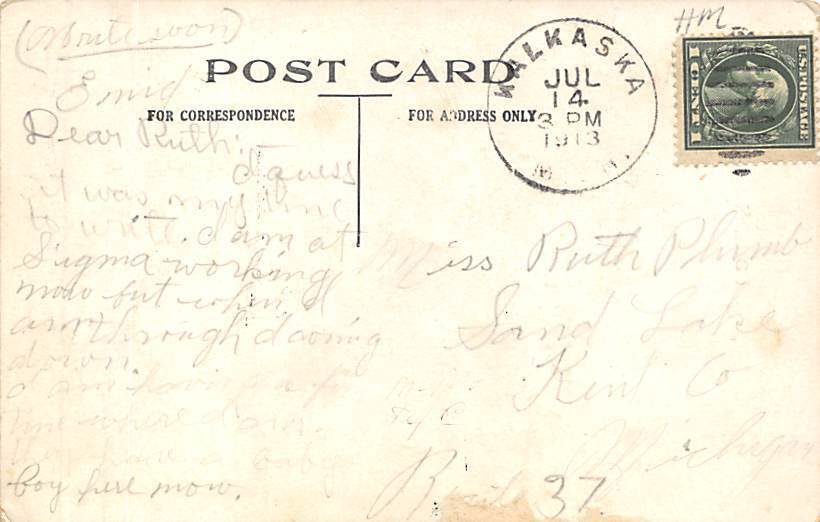 (Write soon)
Enid
POST CARD
FOR CORRESPONDENCE
FOR ADDRESS ONLY
WALKASKA
JUL
14
3 PM
1913
HM
U.S. POSTAGE
1 CENT 1
Dear Ruth:
I guess
it was my time
to write. I am at
Sigma working
now but when I
am through I going
down.
I am having a
time where I am.
they have a baby
boy here now.
Miss Ruth Plumb
Sand Lake
Kent Co
Michigan
Route 37